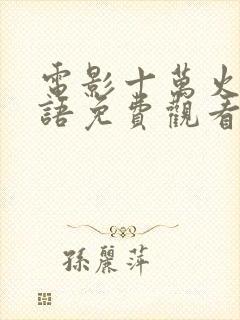 電影十萬火
語免費觀看
孫麗萍